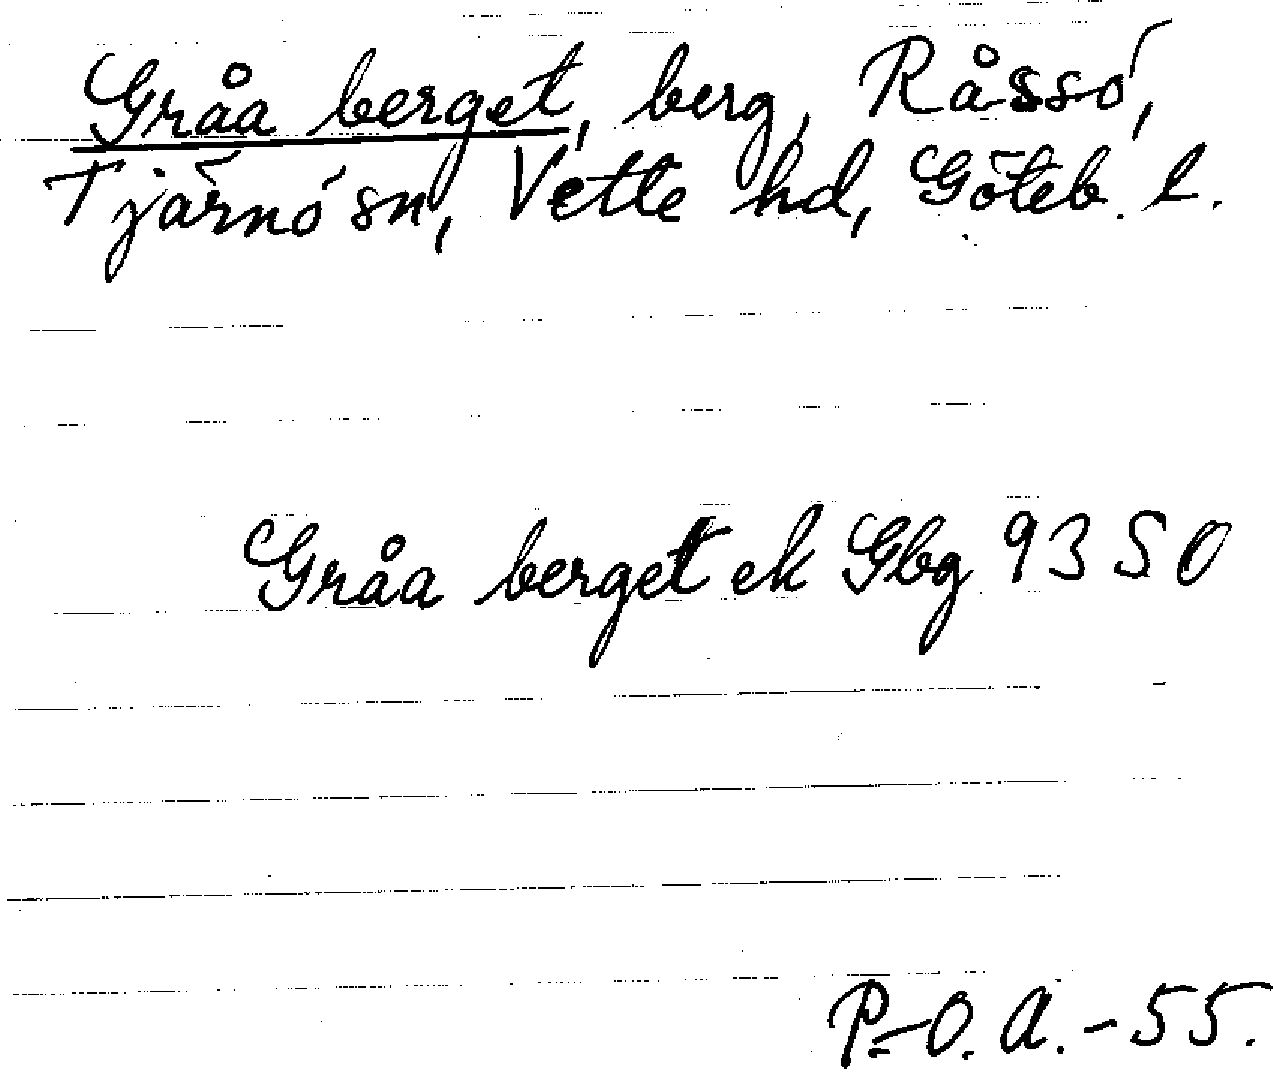 Gråa berget, berg, Råssö,
Tjärnö sn, Vette hd, Göteb. l.
Gråa berget ek Gbg 9350
P-O. A. - 55.